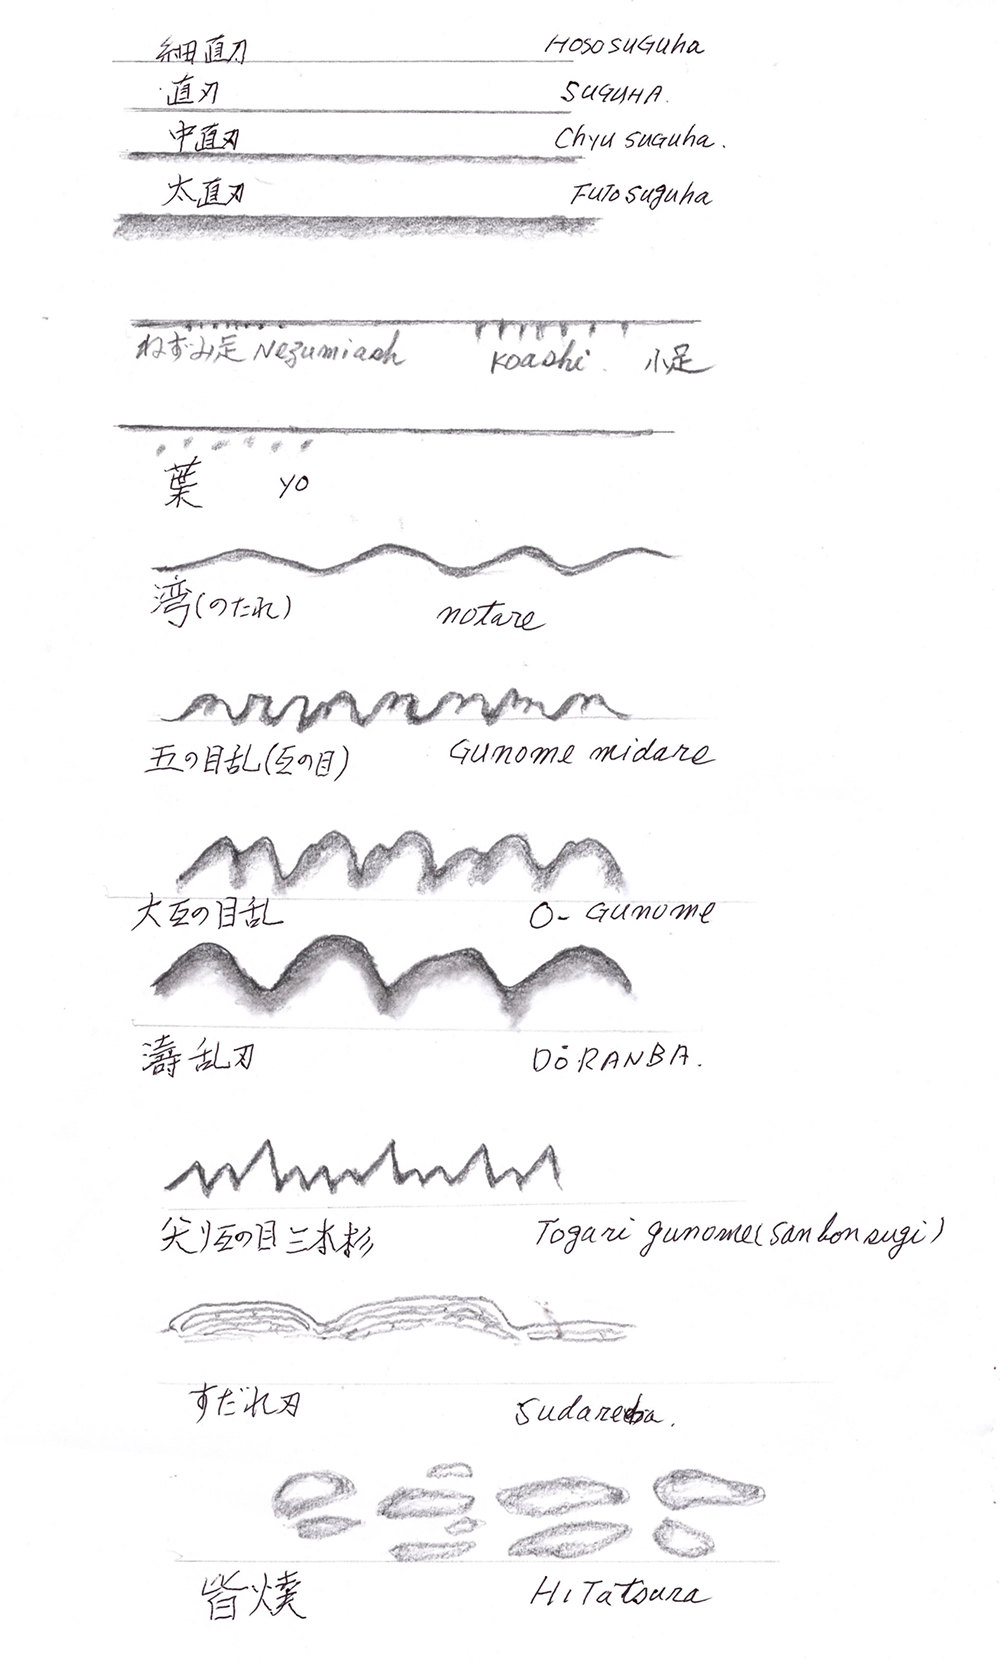 細直刃 HOSOSUGUha
直刃 SUGUHA.
中直刃 Chyu SUGUha.
太直刃 FUTOSuguha
ねずみ足 Nezumiash Koashi. 小足
葉 YO
湾(のたれ) notare
五の目乱(互の目) GUNOME midare
大互の目乱 O- GUNOME
濤乱刃 DōRANBA.
尖り互の目三本杉 Togari gunome(Sanbonsugi)
すだれ刃 Sudareba.
皆燒 HiTatsura